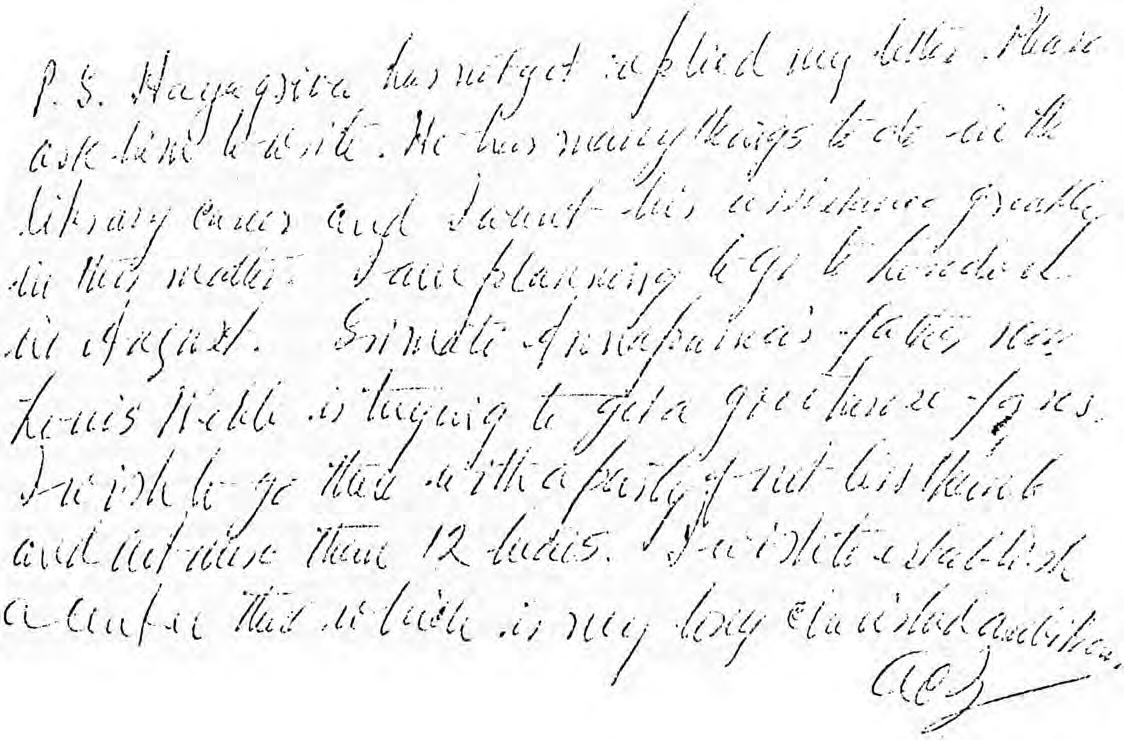 P.S. Hayagriva has not yet replied my letter. Please
ask him to write. He has many things to do in the
library and I want his assistance greatly
in this matter. I am planning to go to London
in August. Srimati Annapurna's father
Louis Webb is trying to get a green house for us.
I wish to go there with a party of not less than 6
and not more than 12 heads. I wish to establish
a center there which is my long cherished ambition.
ACB